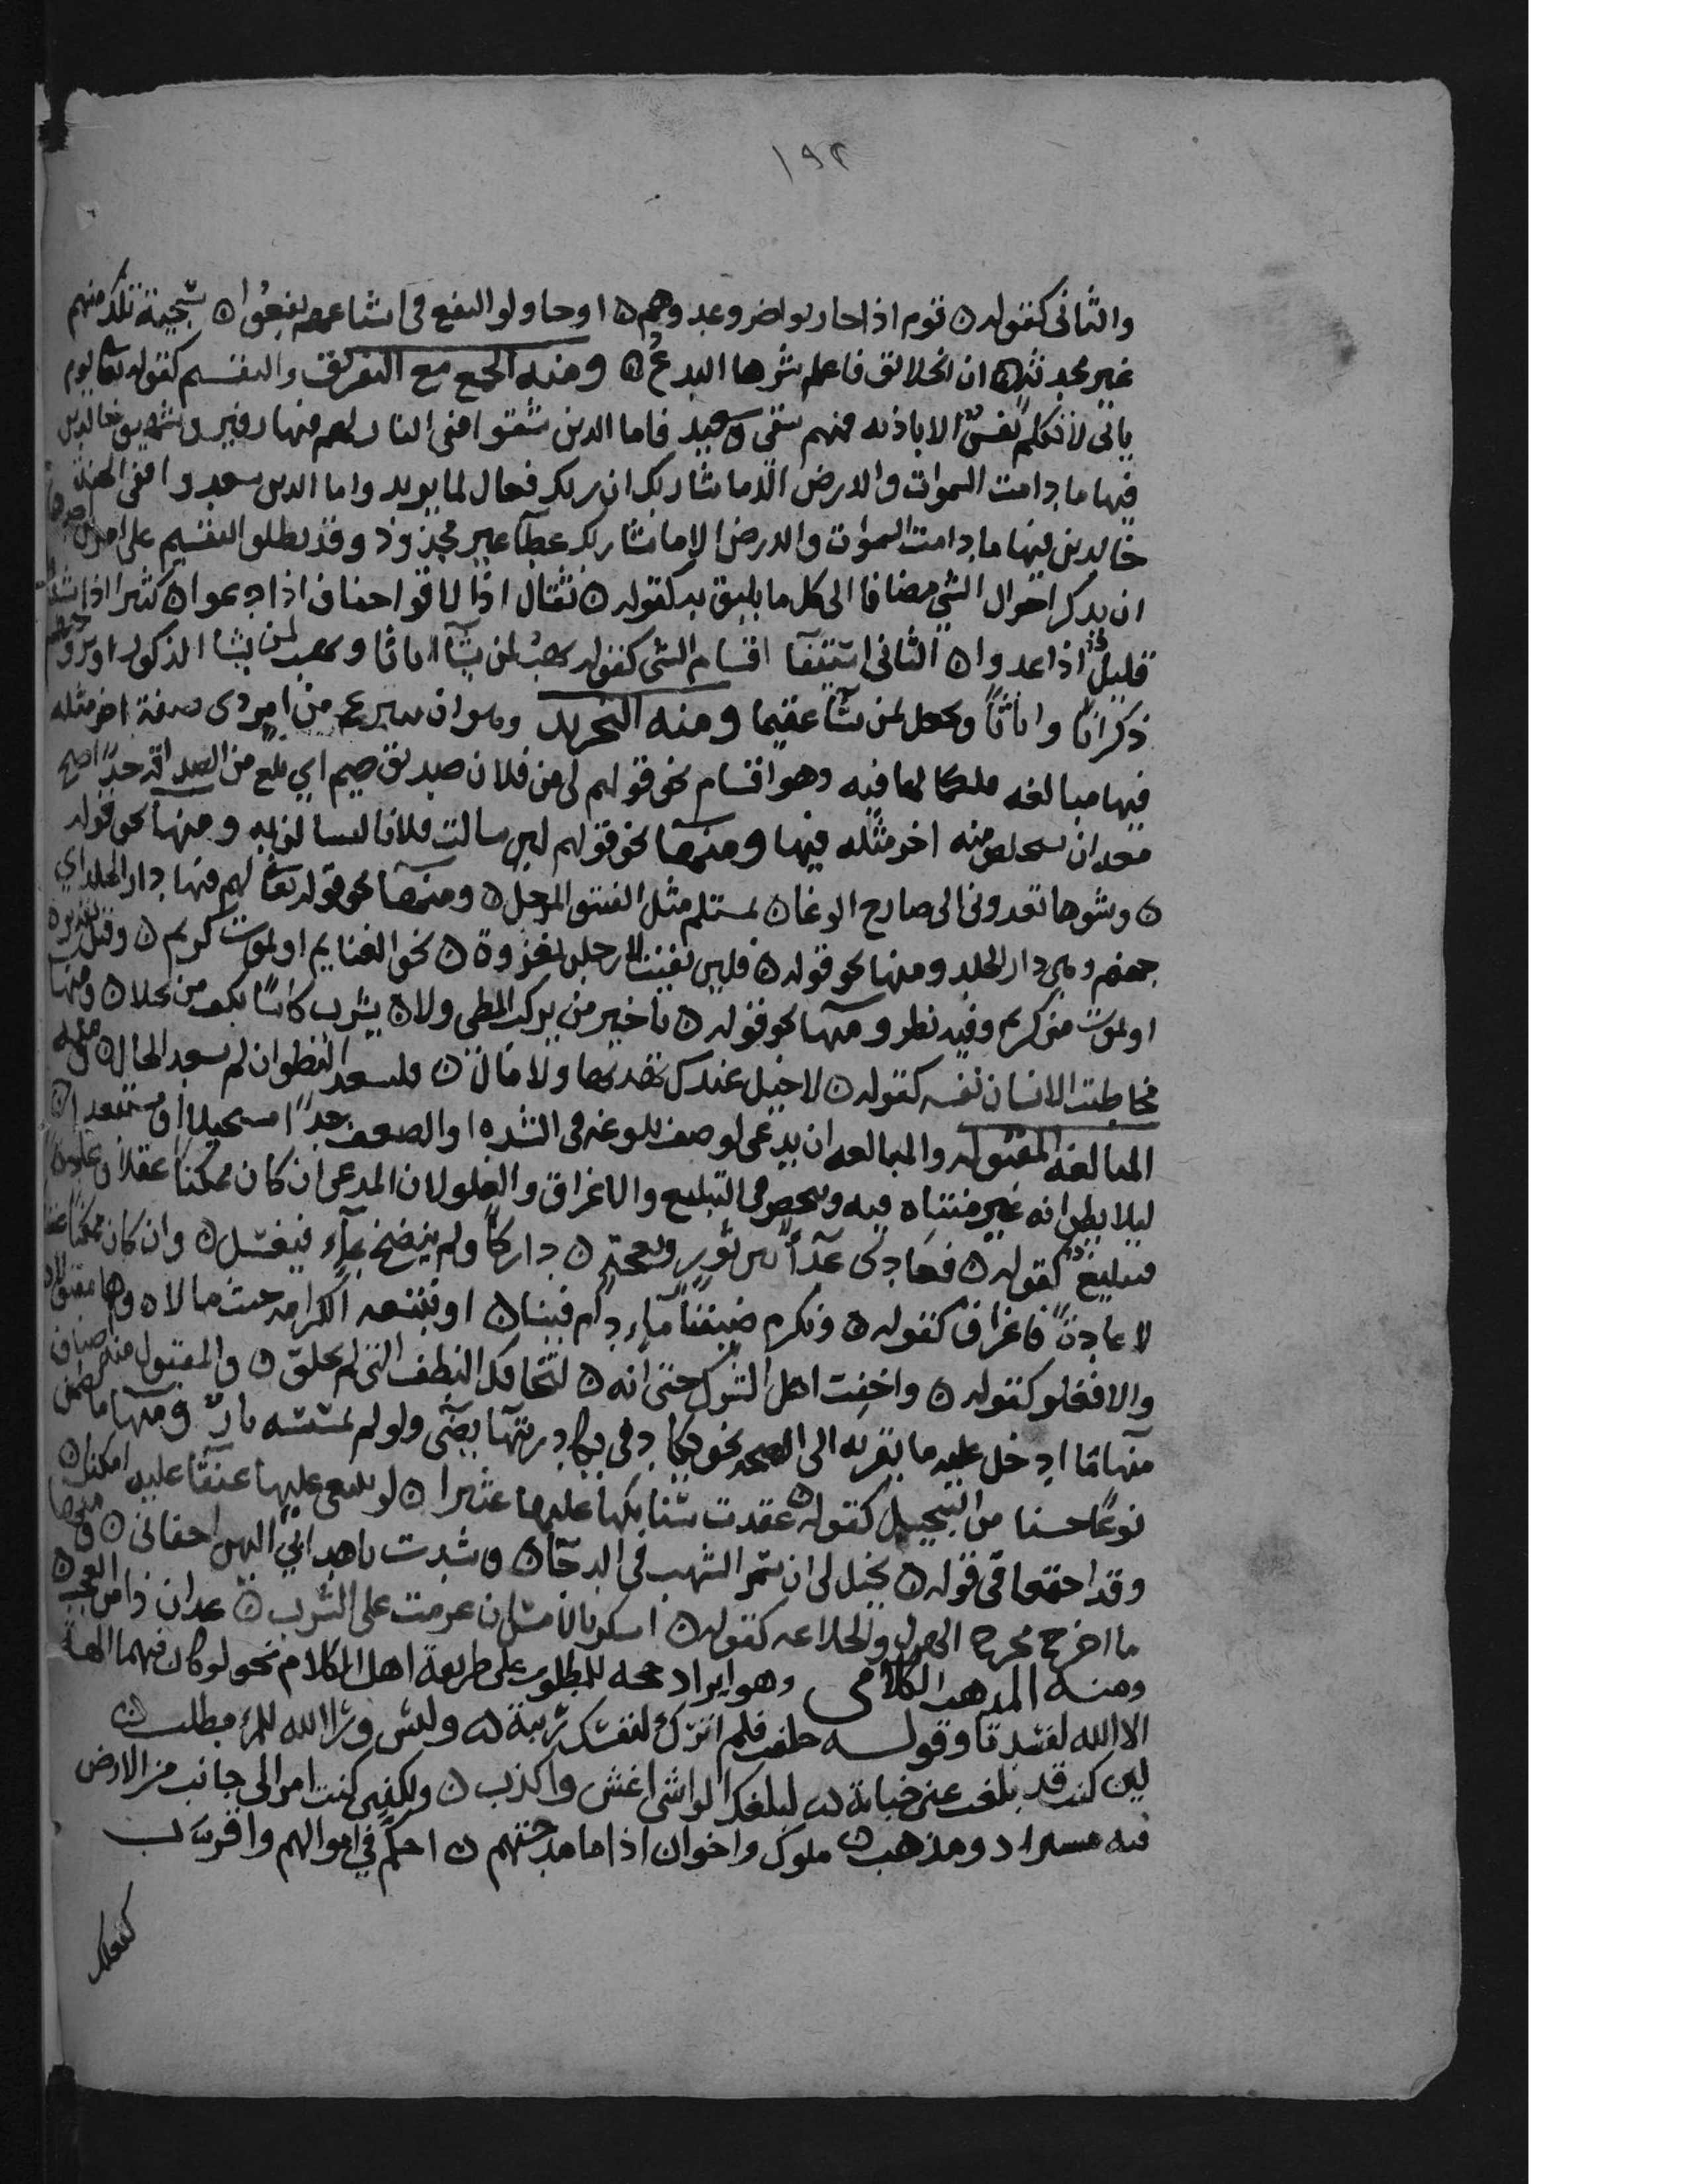 ١٩٢
والثانى كقوله ن قوم اذا حاربوا ضروا عدوهم ن او حاولوا النفع فى اشياعهم نفعوا ن سجية تلك منهم
غير محدثة ن ان الخلائق فاعلم شرها البدع ن ومنه الجمع مع التفريق والتقسيم كقوله تعا يوم
ياتى لا تكلم نفسٌ الا باذنه فمنهم شقى وسعيد فاما الذين شقوا ففى النار لهم فيها زفير وشهيق خالدين
فيها ما دامت السموات والارض الا ما شا ربك ان ربك فعال لما يريد واما الذين سعدوا ففى الجنة
خالدين فيها ما دامت السموات والارض الا ما شا ربك عطآ غير مجذوذ وقد يطلق التقسيم على امرين احدهما
ان يذكر احوال الشي مضافا الى كل ما يليق به كقوله ن ثقال اذا لاقوا خفاف اذا دعوا ن كثير اذا شدوا
قليلٌ اذا عدوا ن الثانى استيفا اقسام الشى كقوله يهب لمن يشآ اناثا ويهب لمن يشا الذكور او يزوجهم
ذكرانا واناثاً ويجعل من يشآ عقيما ومنه التجريد وهو ان ينتزع من امر ذى صفة اخر مثله
فيها مبالغه لكمالها فيه وهو اقسام نحو قولهم لى من فلان صديق حميم اي بلغ من الصداقة حدًا صح
معه ان يستخلص منه اخر مثله فيها ومنها نحو قولهم لين سالت فلانا لتسالن به ومنها نحو قوله
ن وشوها تعدونى الى صارخ الوغا ن بمستلم مثل الفنيق المرحل ن ومنها نحو قوله تعا لهم فيها دار الخلد اي
جهنم وهى دار الخلد ومنها نحو قوله ن فلين بقيت لارحلن بغزوة ن نحو الغنايم او يموت كريم ن وقيل تقديره
او يموت منى كريم وفيه نظر ومنها نحو قوله ن يا خير من يركب المطى ولا ن يشرب كاسًا بكف من بخلا ن ومنها
مخاطبة الانسان نفسه كقوله ن لا خيل عندك تهديها ولا مال ن فليسعد النطق ان لم يسعد الحال ن ومنه
المبالغه المقبوله والمبالغه ان يدعى لوصف بلوغه فى الشده او الضعف حدًا مستحيلا او مستبعدا ن
ليلا يظن انه غير متناه فيه وتنحصر فى التبليغ والاغراق والغلو لان المدعى ان كان ممكنا عقلا وعادة
فتبليغ كقوله ن فعادى عدآً بين ثور ونعجة ن دراكاً ولم ينضح بمآء فيغسل ن وان كان ممكنا عقلا
لا عادة فاغراق كقوله ن ونكرم ضيفنا ما دام فينا ن او نتبعه الكرامه حيث مالا ن وهما مقبولان
والا فغلو كقوله ن واخفت اهل الشرك حتى انه ن لتخافك النطف التى لم تخلق ن والمقبول منه اصناف
منها ما ادخل عليه ما يقربه الى الصحه نحو يكاد فى يكاد زيتها يضى ولو لم تمسسه نار ومنها ما تضمن
نوعًا حسنا من التخييل كقوله ن عقدت سنابكها عليها عثيرا ن لو تبتغى عليها عنقا عليه امكنا ن
وقد اجتمعا فى قوله ن يخيل لى ان سمر الشهب فى الدجا ن وشدت باهدابي اليهن اجفانى ن ومنها
ما اخرج مخرج الهزل والخلاعه كقوله ن اسكر بالامس ان عزمت على الشرب ن غدا ان ذا من العجب ن
ومنه المذهب الكلامى وهو ايراد حجه للمطلوب على طريقة اهل الكلام نحو لو كان فيهما الهة
الا الله لفسدتا وقوله حلفت فلم اترك لنفسك ريبة ن وليس ورا الله للمرء مطلب ن
لين كنت قد بلغت عنى خيانة ن لمبلغك الواشى اغش واكذب ن ولكننى كنت امرا لى جانب من الارض
فيه مستراد ومذهب ن ملوك واخوان اذا ما مدحتهم ن احكم في اموالهم واقرب
كفعلك